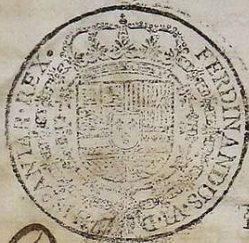 FERDINANDUS·VI·D·
HISPANIAR·REX·